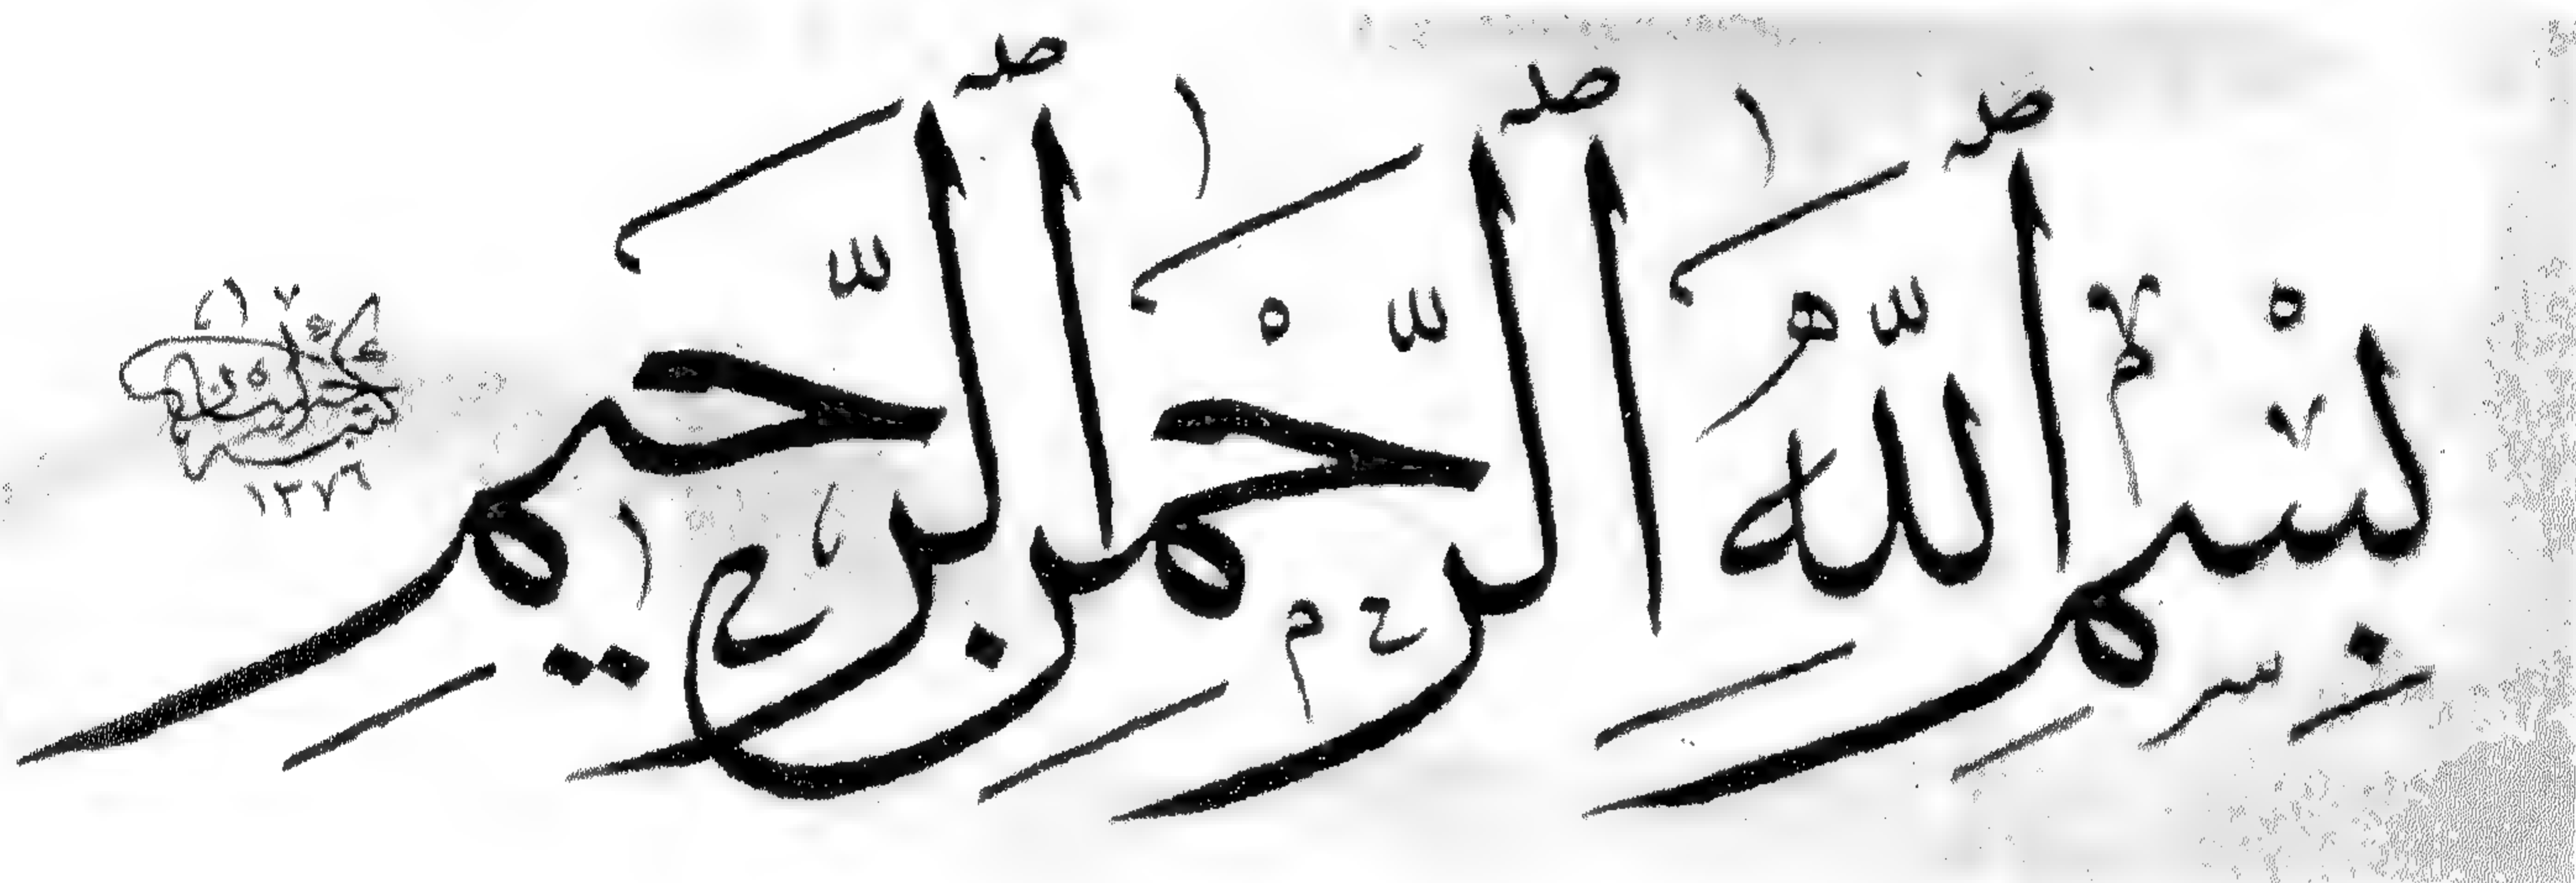 بِسْمِ ٱللَّهِ ٱلرَّحْمَٰنِ ٱلرَّحِيمِ
١٣٧٦